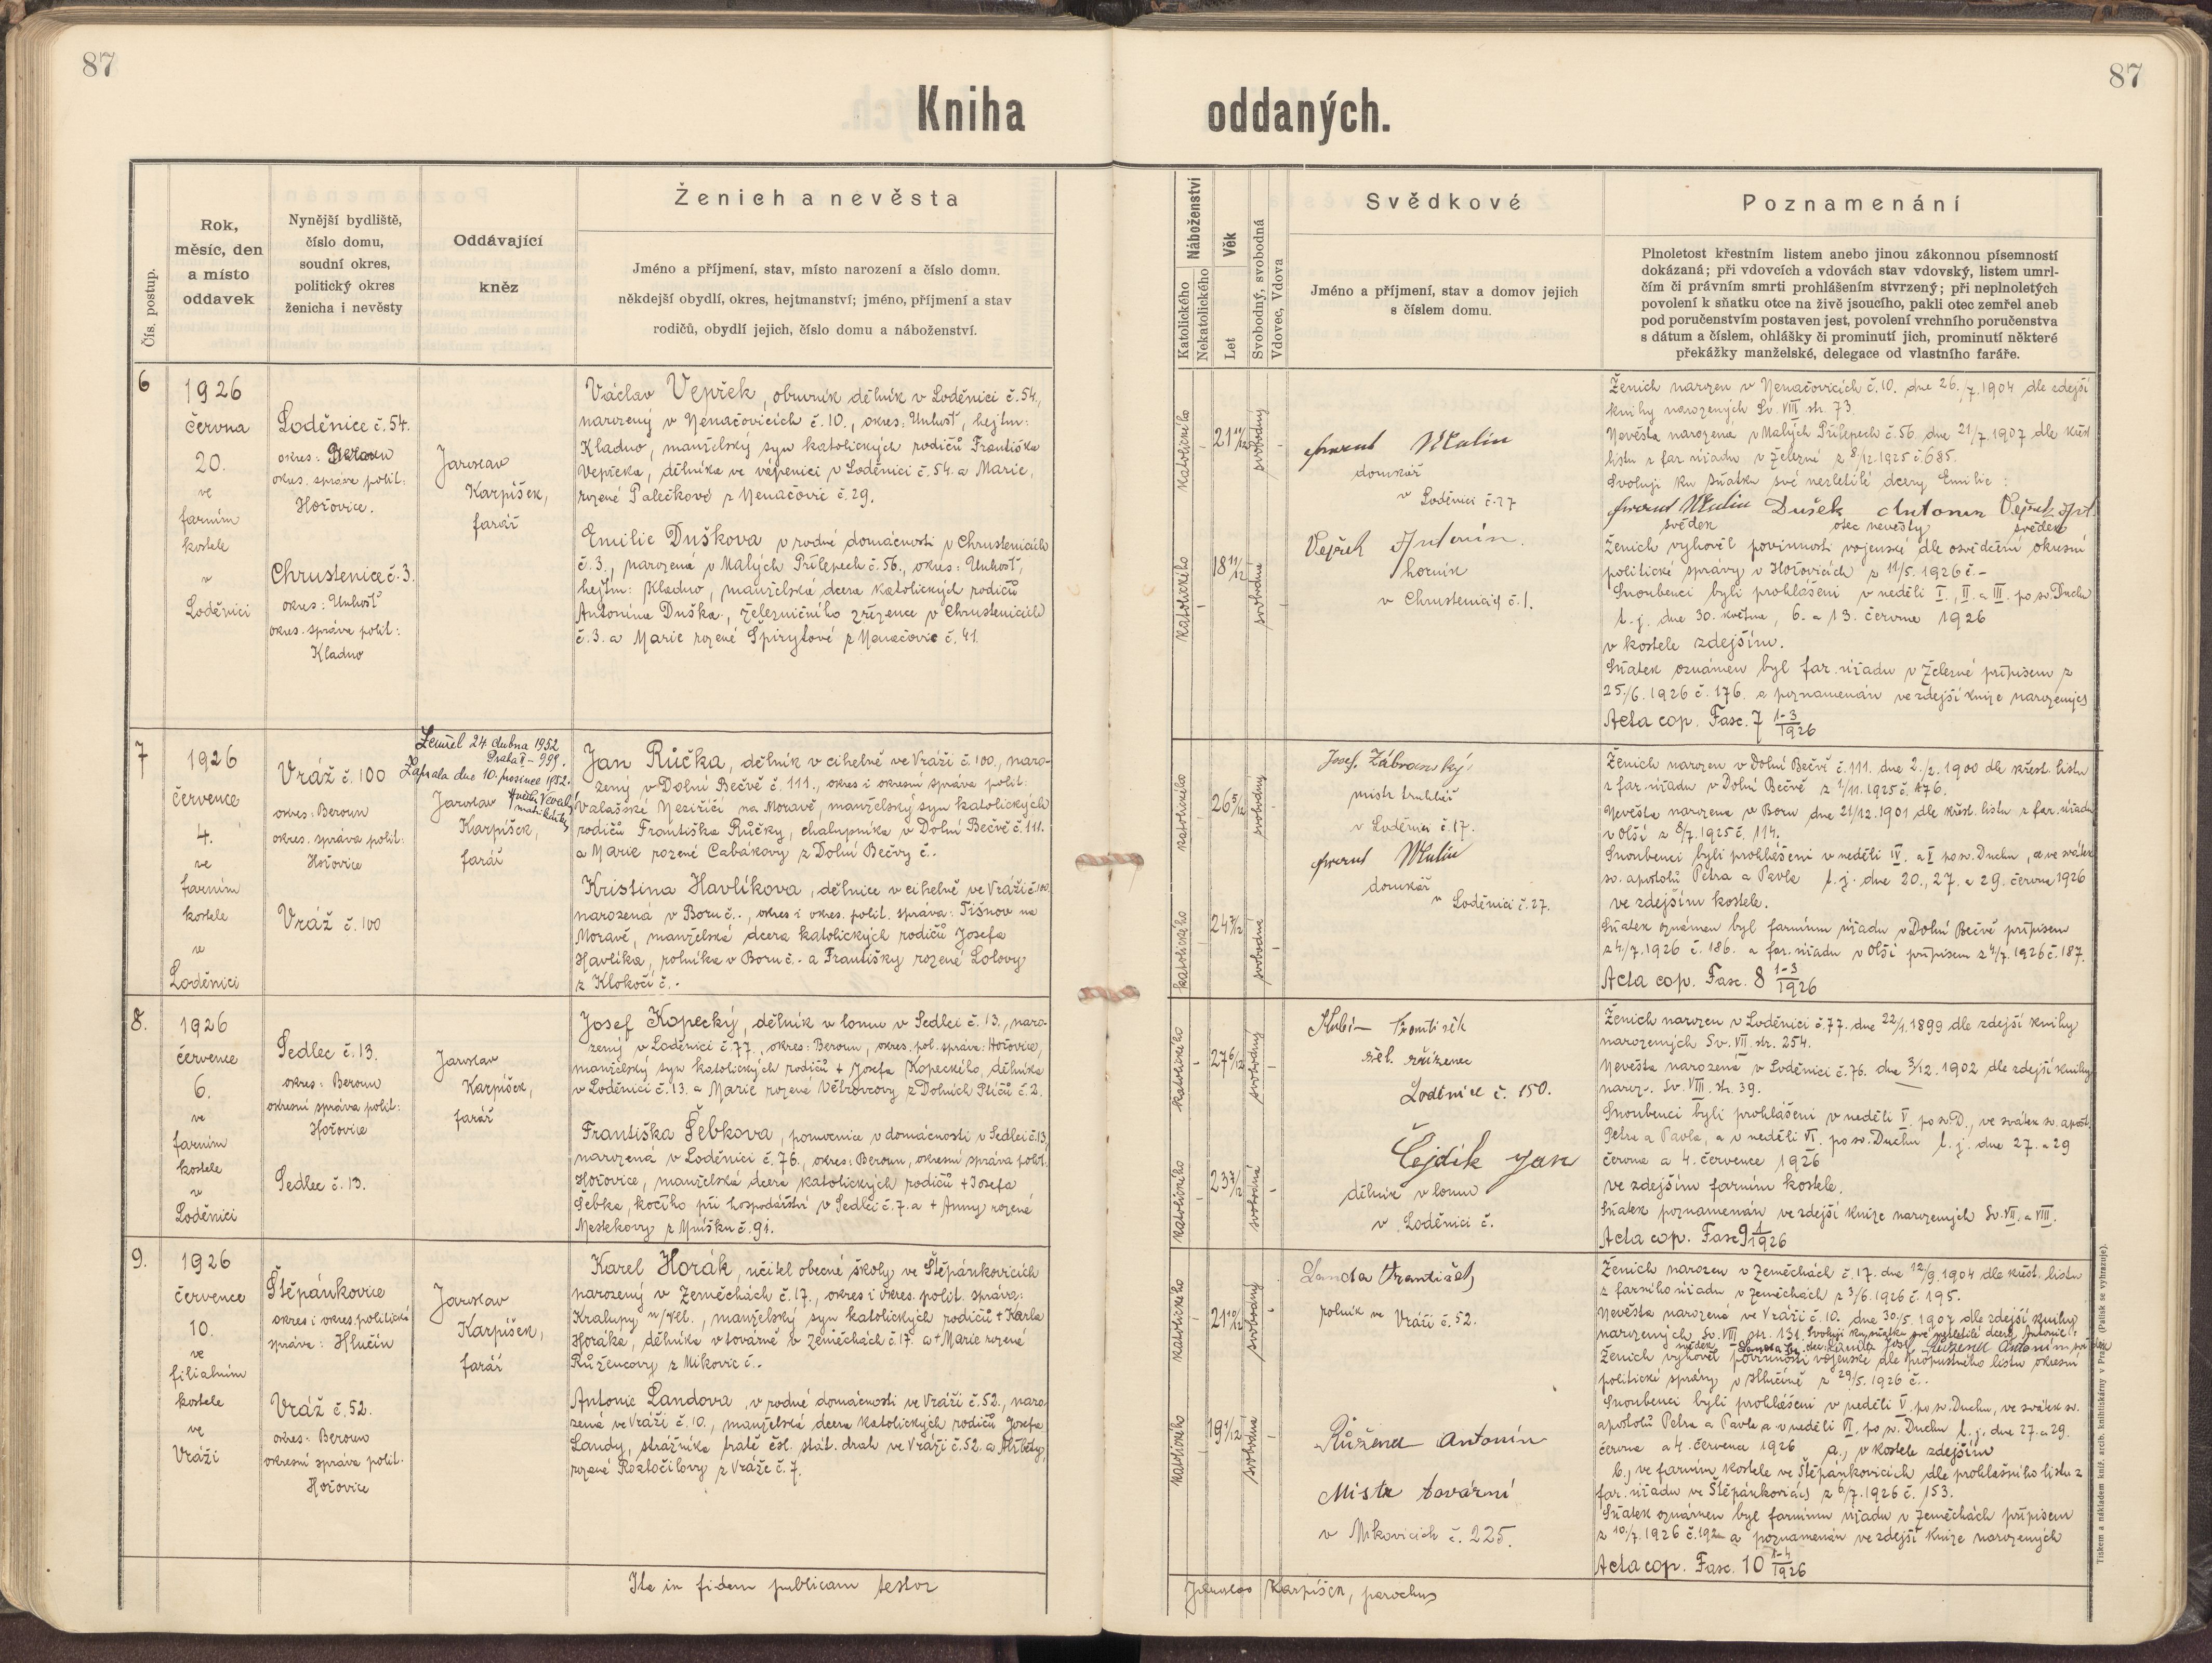 87
87
Kniha oddaných.
Čís. postup.
Rok,
měsíc, den
a místo
oddavek
Nynější bydliště,
číslo domu,
soudní okres,
politický okres
ženicha i nevěsty
Oddávající
kněz
Ženich a nevěsta
Jméno a příjmení, stav, místo narození a číslo domu.
někdejší obydlí, okres, hejtmanství; jméno, příjmení a stav
rodičů, obydlí jejich, číslo domu a náboženství.
Náboženství
Katolického
Nekatolického
Věk
Let
Svobodný, svobodná
Vdovec, Vdova
Svědkové
Jméno a příjmení, stav a domov jejich
s číslem domu.
Poznamenání
Plnoletost křestním listem anebo jinou zákonnou písemností
dokázaná; při vdovcích a vdovách stav vdovský, listem umrl-
čím či právním smrti prohlášením stvrzený; při neplnoletých
povolení k sňatku otce na živě jsoucího, pakli otec zemřel aneb
pod poručenstvím postaven jest, povolení vrchního poručenstva
s dátum a číslem, ohlášky či prominutí jich, prominutí některé
překážky manželské, delegace od vlastního faráře.
6
1926
června
20.
ve
farním
kostele
v
Loděnici
Loděnice č. 54.
okres: Beroun
okres. správa polit:
Hořovice.
Chrustenice č. 3.
okres: Unhošť
okres. správa polit:
Kladno
Jaroslav
Karpíšek,
farář
Václav Vepřek, obuvník dělník v Loděnici č. 54.,
narozený v Nenačovicích č. 10., okres: Unhošť, hejtm:
Kladno, manželský syn katolických rodičů Františka
Vepřeka, dělníka ve vápenici v Loděnici č. 54. a Marie,
rozené Palečkové z Nenačovic č. 29.
Emilie Duškova v rodné domácnosti v Chrustenicích
č. 3., narozená v Malých Přílepech č. 56., okres: Unhošť,
hejtm: Kladno, manželská dcera katolických rodičů
Antonína Duška, železničního zřízence v Chrustenicích
č. 3. a Marie rozené Špirytové z Nenačovic č. 41.
katolického
21 11/12
svobodný
katolického
18 11/12
svobodná
domkář
v Loděnici č. 27
Vepřek Antonín.
horník
v Chrustenicích č. 1.
Ženich narozen v Nenačovicích č. 10. dne 26./7. 1904 dle zdejší
knihy narozených Sv. VIII str. 73.
Nevěsta narozena v Malých Přílepech č. 56. dne 21/7. 1907 dle křest
listu z far. úřadu v Železné z 8/12. 1925 č. 685.
Svoluji ku sňatku své nezletilé dcery Emilie:
Dušek Antonín Vepřek Ant.
svědek otec nevěsty svědek
Ženich vyhověl povinnosti vojenské dle osvědčení okresní
politické správy v Hořovicích z 11/5. 1926 č. –
Snoubenci byli prohlášeni v neděli I., II. a III. po sv. Duchu
t. j. dne 30. května, 6. a 13. června 1926
v kostele zdejším.
Sňatek oznámen byl far. úřadu v Železné přípisem z
25./6. 1926 č. 176. a poznamenán ve zdejší knize narozených
Acta cop. Fasc. 7 1-3/1926
7
1926
července
4.
ve
farním
kostele
v
Loděnici
Vráž č. 100
okres: Beroun
okres. správa polit:
Hořovice
Vráž č. 100
Zemřel 24. dubna 1952
Praha II – 999.
Zapsala dne 10. prosince 1952.
Jaroslav
Karpíšek,
farář
Jan Růčka, dělník v cihelně ve Vráži č. 100., naro-
zený v Dolní Bečvě č. 111., okres i okresní správa polit:
Valašské Meziříčí na Moravě, manželský syn katolických
rodičů Františka Růčky, chalupníka v Dolní Bečvě č. 111.
a Marie rozené Cabákovy z Dolní Bečvy č..
Kristina Havlíkova, dělnice v cihelně ve Vráži č. 100.
narozená v Boru č.., okres i okres. polit. správa: Tišnov na
Moravě, manželská dcera katolických rodičů Josefa
Havlíka, rolníka v Boru č. . a Františky rozené Lolovy
z Klokočí č. .
katolického
26 5/12
svobodný
katolického
24 7/12
svobodná
Josef Zábranský,
mistr truhlář
v Loděnici č. 17.
domkář
v Loděnici č. 27.
Ženich narozen v Dolní Bečvě č. 111. dne 2./2. 1900 dle křest. listu
z far. úřadu v Dolní Bečvě z 1/11. 1925 č. 476.
Nevěsta narozena v Boru dne 21/12. 1901 dle křest. listu z far. úřadu
v Olší z 8/7. 1925 č. 114.
Snoubenci byli prohlášeni v neděli IV. a V po sv. Duchu, a ve svátek
sv. apoštolů Petra a Pavla t. j. dne 20., 27. a 29. června 1926
ve zdejším kostele.
Sňatek oznámen byl farnímu úřadu v Dolní Bečvě přípisem
z 4/7. 1926 č. 186. a far. úřadu v Olší přípisem z 4/7. 1926 č. 187.
Acta cop. Fasc. 8 1-3/1926
8.
1926
července
6.
ve
farním
kostele
v
Loděnici
Sedlec č. 13.
okres: Beroun
okresní správa polit:
Hořovice
Sedlec č. 13.
Jaroslav
Karpíšek,
farář
Josef Kopecký, dělník v lomu v Sedlci č. 13., naro-
zený v Loděnici č. 77., okres: Beroun, okres. pol. správa: Hořovice,
manželský syn katolických rodičů + Josefa Kopeckého, dělníka
v Loděnici č. 13. a Marie rozené Větrovcovy z Dolních Sličů č. 2.
Františka Šebkova, pomocnice v domácnosti v Sedlci č. 13,
narozená v Loděnici č. 76., okres: Beroun, okresní správa polit.
Hořovice, manželská dcera katolických rodičů + Josefa
Šebka, kočího při hospodářství v Sedlci č. 7. a + Anny rozené
Meskekovy z Mníšku č. 91.
katolického
27 6/12
svobodný
katolického
23 7/12
svobodná
František
žel. zřízenec
Loděnice č. 150.
Čejdík Jan
dělník v lomu
v Loděnici č.
Ženich narozen v Loděnici č. 77. dne 22/1. 1899 dle zdejší knihy
narozených Sv. VII. str. 254.
Nevěsta narozená v Loděnici č. 76. dne 3/12. 1902 dle zdejší knihy
naroz. Sv. VIII. str. 39.
Snoubenci byli prohlášeni v neděli V. po sv. D., ve svátek sv. apošt.
Petra a Pavla, a v neděli VI. po sv. Duchu t. j. dne 27. a 29
června a 4. července 1926
ve zdejším farním kostele.
Sňatek poznamenán ve zdejší knize narozených Sv. VII. a VIII.
Acta cop. Fasc 9 1/1926
9.
1926
července
10.
ve
filialním
kostele
ve
Vráži
Štěpánkovice
okres i okres. politická
správa: Hlučín
Vráž č. 52.
okres: Beroun
okresní správa polit.
Hořovice
Jaroslav
Karpíšek,
farář
Karel Horák, učitel obecné školy ve Štěpánkovicích
narozený v Zeměchách č. 17., okres i okres. polit. správa:
Kralupy n/Vlt., manželský syn katolických rodičů + Karla
Horáka, dělníka v továrně v Zeměchách č. 17. a + Marie rozené
Růžencovy z Mikovic č..
Antonie Landova, v rodné domácnosti ve Vráži č. 52., naro-
zená ve Vráži č. 10., manželská dcera katolických rodičů Josefa
Landy, strážníka tratě čsl. stát. drah ve Vráži č. 52. a Alžběty,
rozené Roztočilovy z Vráže č. 7.
katolického
21 10/12
svobodný
katolického
19 1/12
svobodná
Landa František,
rolník ve Vráži č. 52.
Růženec Antonín
Mistr tovární
v Mikovicích č. 225.
Ženich narozen v Zeměchách č. 17. dne 12/9. 1904 dle křest. listu
z farního úřadu v Zeměchách z 3/6. 1926 č. 195.
Nevěsta narozená ve Vráži č. 10. dne 30/5. 1907 dle zdejší knihy
narozených Sv. VIII str. 131. Svoluji ku sňatku své nezletilé dcery Antonie:
svědek Landa Fr. otec: Landa Josef Růženec Antonín svědek
Ženich vyhověl povinnosti vojenské dle propustného listu okresní
politické správy v Hlučíně z 29/5. 1926 č. .
Snoubenci byli prohlášeni v neděli V. po sv. Duchu, ve svátek sv.
apoštolů Petra a Pavla a v neděli VI. po sv. Duchu t. j. dne 27. a 29.
června a 4. července 1926 a., v kostele zdejším
b., ve farním kostele ve Štěpánkovicích dle prohlášního listu z
far. úřadu ve Štěpánkovicích z 6/7. 1926 č. 153.
Sňatek oznámen byl farnímu úřadu v Zeměchách přípisem
z 10./7. 1926 č. 192 a poznamenán ve zdejší knize narozených
Acta cop. Fasc. 10 1-4/1926
Ita in fidem publicam testor
Jaroslav Karpíšek, parochus
Tiskem a nákladem kníž. arcib. knihtiskárny v Praze. (Patisk se vyhrazuje).